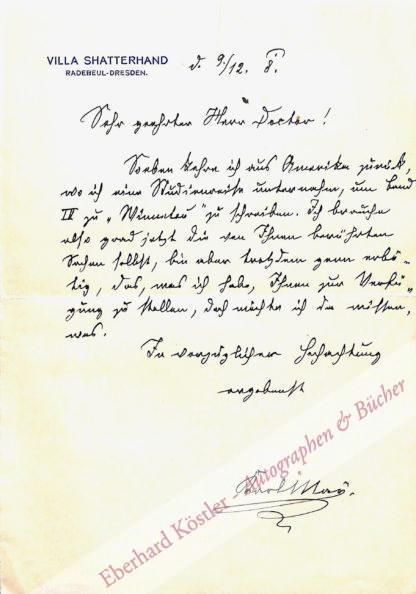 VILLA SHATTERHAND
RADEBEUL-DRESDEN.
d. 9./12. 8.
Sehr geehrter Herr Doctor!
Soeben kehre ich aus Amerika zurück,
wo ich eine Studienreise unternahm, um Band
IV zu „Winnetou" zu schreiben. Ich brauche
also grad jetzt die von Ihnen berührten
Sachen selbst, bin aber trotzdem gern erbö-
tig, das, was ich habe, Ihnen zur Verfü-
gung zu stellen, doch möchte ich da wissen,
was.
In vorzüglicher Hochachtung
ergebenst
Karl May.
Eberhard Köstler - Autographen & Bücher